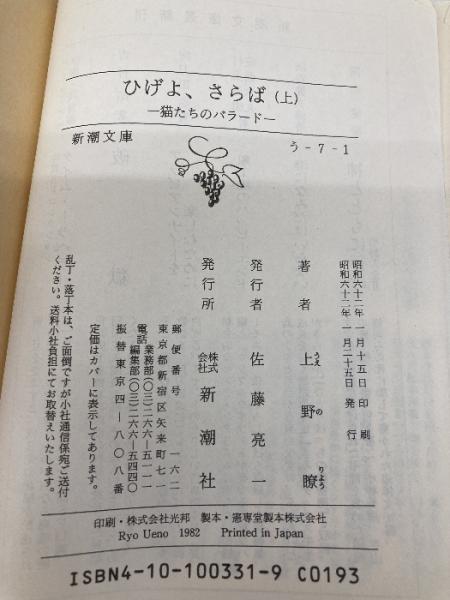 ひげよ、さらば(上)
―猫たちのバラード―
新潮文庫
う-7-1
昭和六十二年一月十五日印刷
昭和六十二年一月二十五日発行
著者 上野瞭
うえ の りょう
発行者 佐藤亮一
発行所 株式会社 新潮社
郵便番号 一六二
東京都新宿区矢来町七一
電話 業務部(〇三)二六六―五一一一
編集部(〇三)二六六―五四四〇
振替東京四―八〇八番
定価はカバーに表示してあります。
乱丁・落丁本は、ご面倒ですが小社通信係宛ご送付
ください。送料小社負担にてお取替えいたします。
印刷・株式会社光邦 製本・憲専堂製本株式会社
Ryo Ueno 1982 Printed in Japan
ISBN4-10-100331-9 C0193